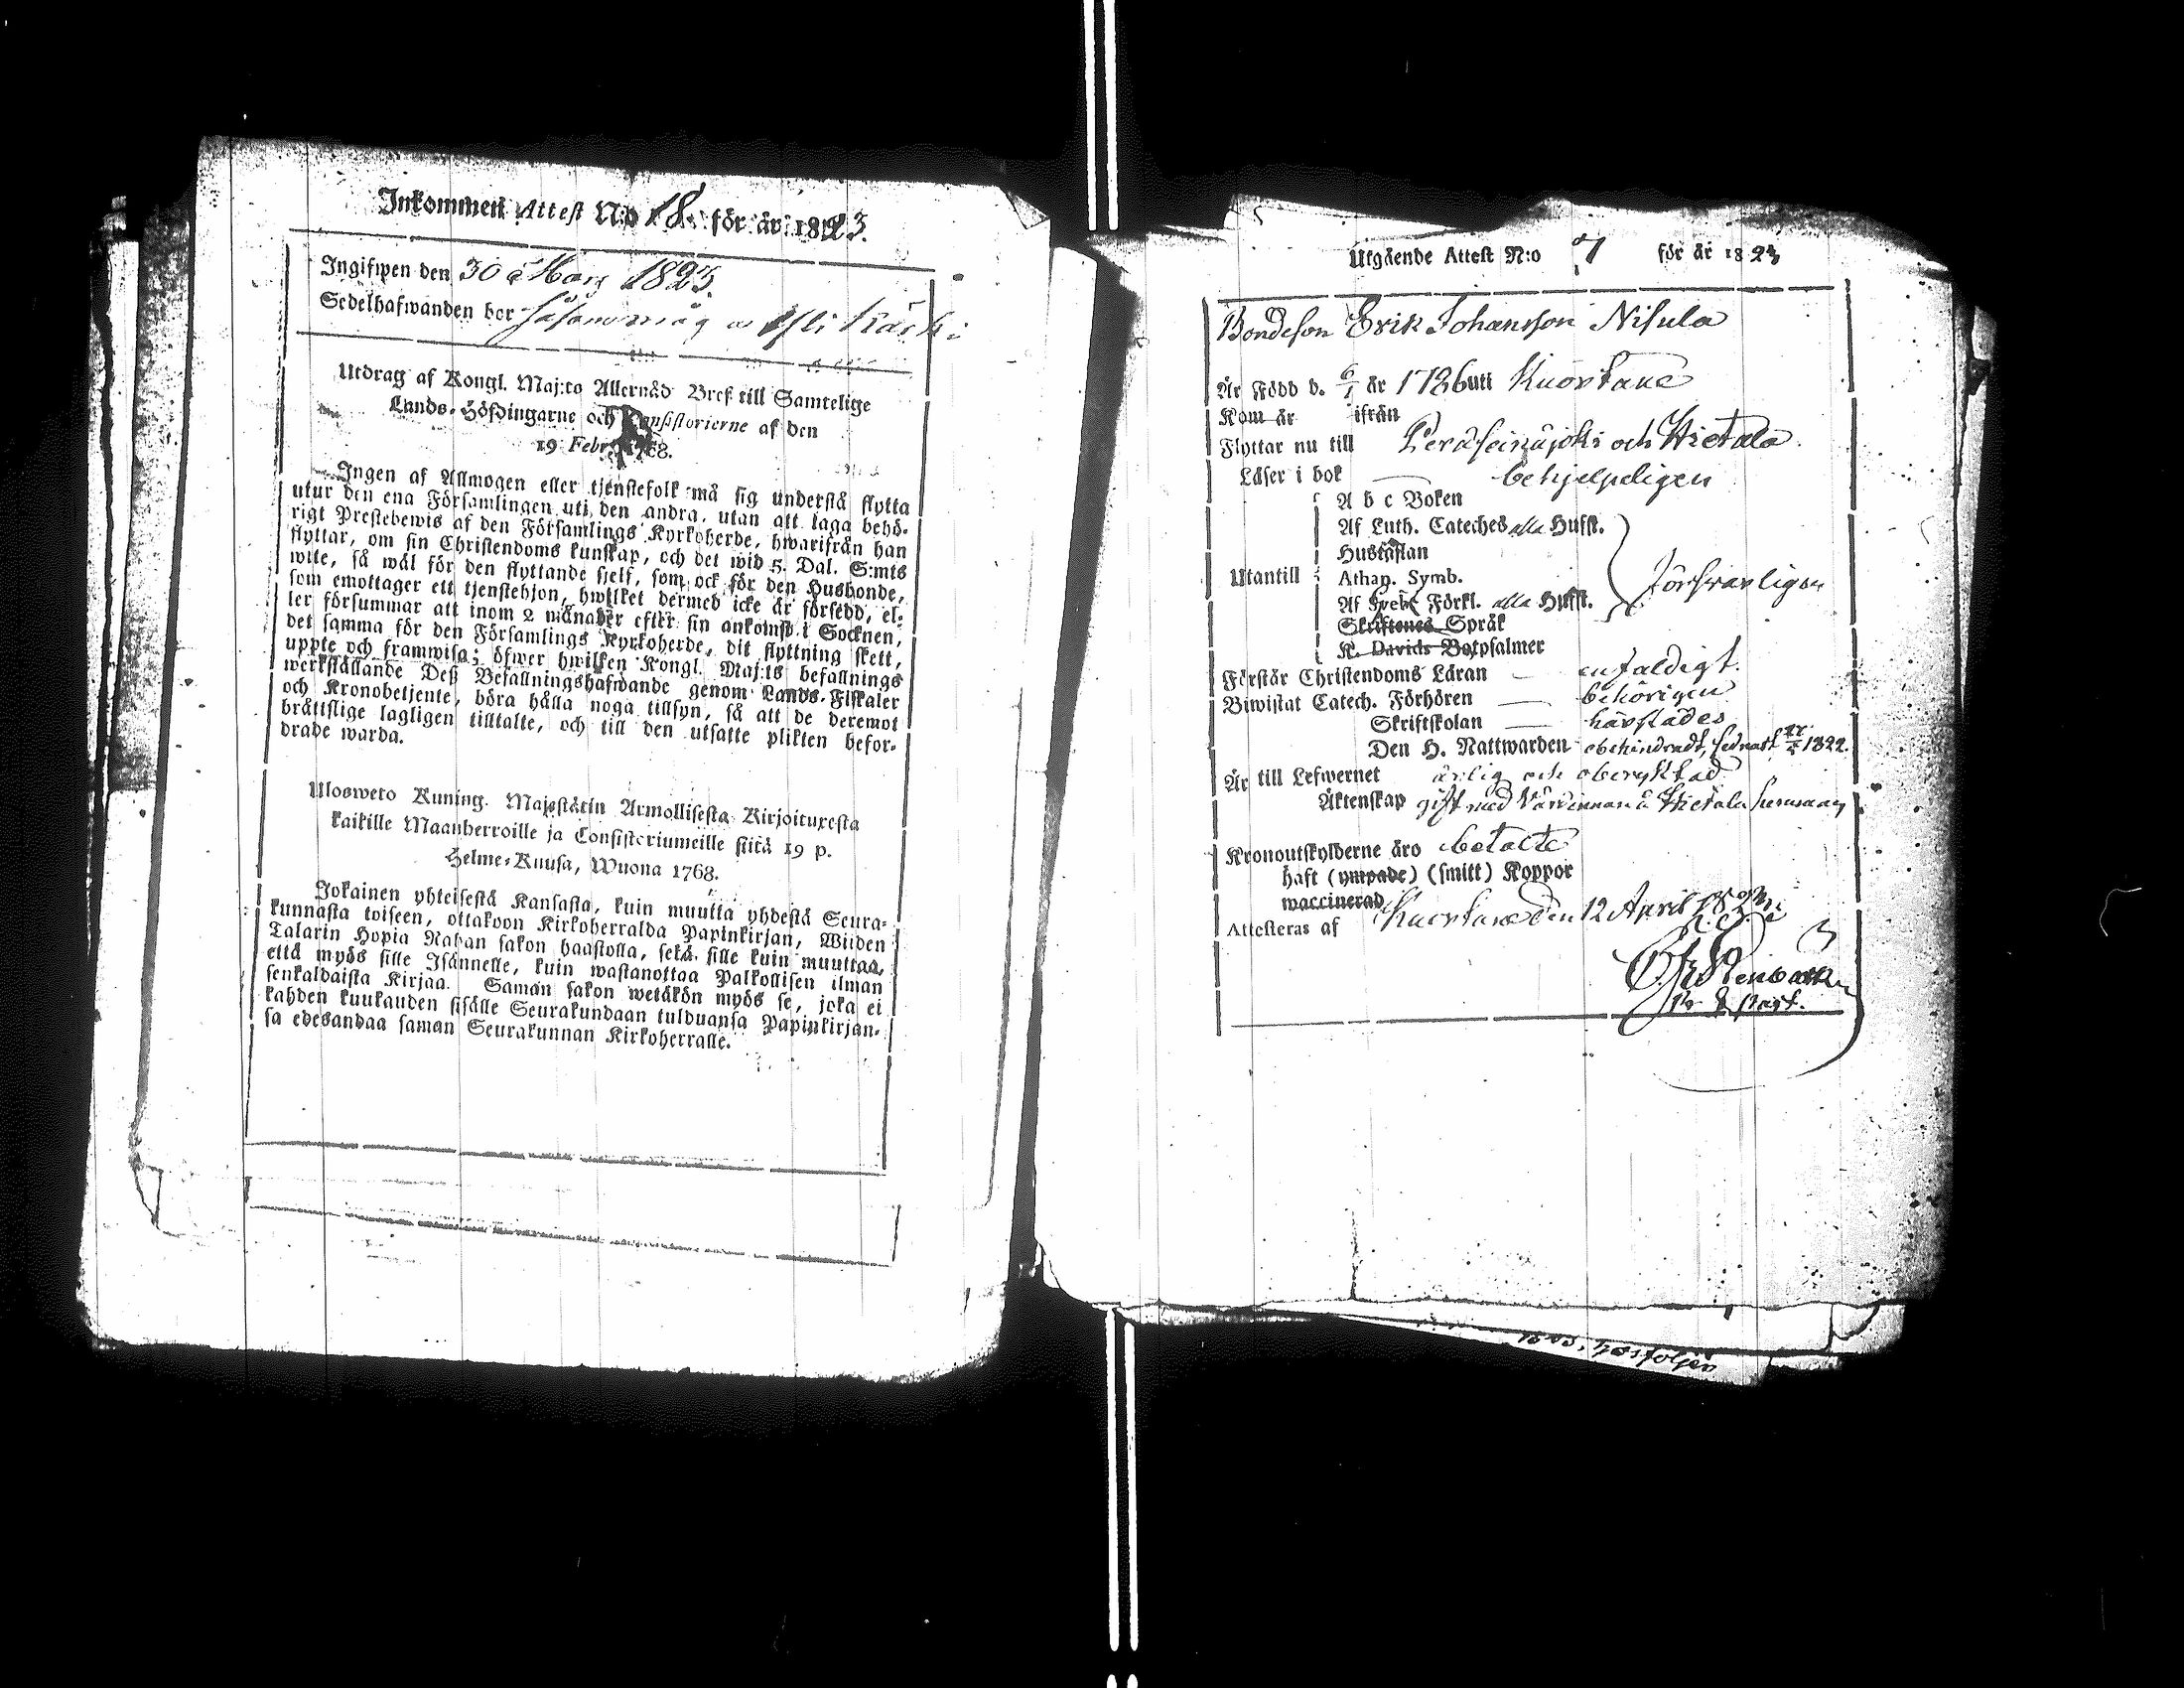 Inkommen Attest N:o 18. för år 1823.
Ingifwen den 30 Mars 1823
Sedelhafwanden bor såsom måg å Yli Käski
Utdrag af Kongl. Maj:ts Allernåd Bref till Samtelige
Lands-Höfdingarne och Consistorierne af den
19 Febr. 1768.
Ingen af Allmogen eller tjenstefolk må sig understå flytta
utur den ena Församlingen uti den andra, utan att taga behö-
rigt Prestebewis af den Församlings Kyrkoherde, hwarifrån han
flyttar, om sin Christendoms kunskap, och det wid 5. Dal. S:mts
wite, så wäl för den flyttande sjelf, som ock för den Husbonde,
som emottager ett tjenstehjon, hwilket dermed icke är försedd, el-
ler försummar att inom 2 månader efter sin ankomst i Socknen,
det samma för den Församlings Kyrkoherde, dit flyttning skett,
uppte och framwisa; öfwer hwilken Kongl. Maj:ts befallnings
werkställande Deß Befallningshafwande genom Lands-Fiskaler
och Kronobetjente, böra hålla noga tillsyn, så att de deremot
bråttslige lagligen tilltalte, och till den utsatte plikten befor-
drade warda.
Ulosweto Kuning. Majestätin Armollisesta Kirjoituxesta
kaikille Maanherroille ja Consistoriumeille siitä 19 p.
Helme-Kuusa, Wuona 1768.
Jokainen yhteisestä Kansasta, kuin muutta yhdestä Seura-
kunnasta toiseen, ottakoon Kirkoherralda Papinkirjan, Wiiden
Talarin Hopia Rahan sakon haastolla, sekä sille kuin muuttaa,
että myös sille Isännelle, kuin wastanottaa Palkollisen ilman
senkaldaista Kirjaa. Saman sakon wetäkön myös se, joka ei
kahden kuukauden sisälle Seurakundaan tulduansa Papinkirjan-
sa edesandaa saman Seurakunnan Kirkoherralle.
Utgående Attest N:o 7 för år 1823
Bondeson Erik Johansson Nisula
Är Född d. 6/1 år 1786 uti Kuortane
Kom år ifrån
Flyttar nu till Peräseinäjoki och Hietala
Läser i bok behjelpeligen
A b c Boken
Af Luth. Cateches alla Hufst.
Hustaflan
Utantill Athan. Symb. försvarligen
Af Sveb. Förkl. alla Hufst.
Skriftenes Språk
K. Davids Botpsalmer
Förstår Christendoms Läran enfaldigt.
Biwistat Catech. Förhören behörigen
Skriftskolan härstädes
Den H. Nattwarden obehindradt, sednast 1822.
Är till Lefwernet ärlig och oberyktad
Äktenskap gift med Värdinnan å Hietala
Kronoutskylderne äro betalte
haft (ympade) (smitt) Koppor
waccinerad
Attesteras af Kuortane den 12 April 1823